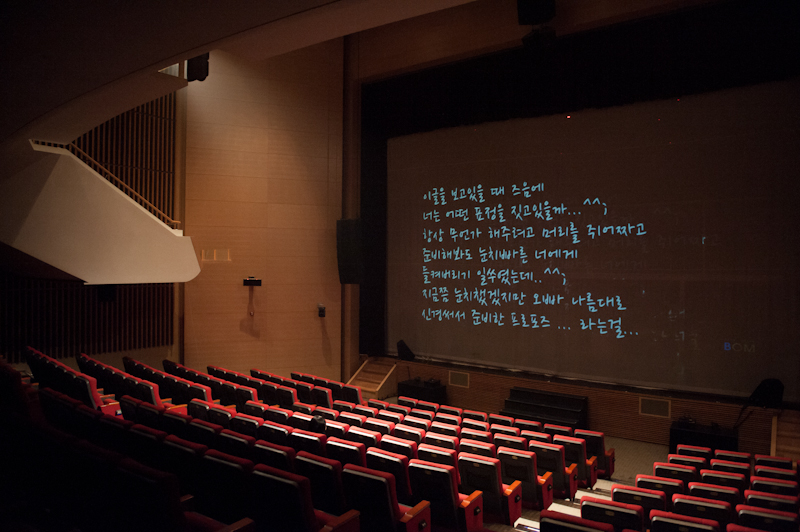 이글을 보고있을 때 즈음에
너는 어떤 표정을 짓고있을까...^^;
항상 무언가 해주려고 머리를 쥐어짜고
준비해봐도 눈치빠른 너에게
들켜버리기 일쑤였는데..^^;
지금쯤 눈치챘겠지만 오빠 나름대로
신경써서 준비한 프로포즈 ... 라는걸...